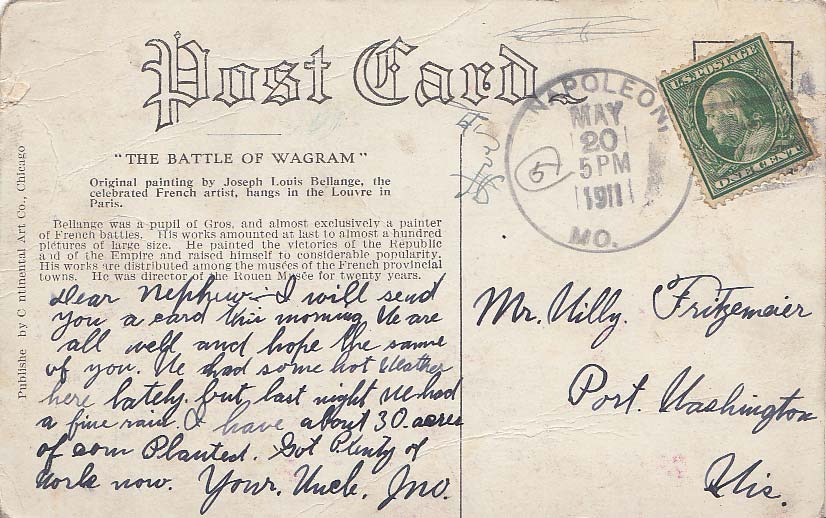 Post Card
"THE BATTLE OF WAGRAM"
Original painting by Joseph Louis Bellange, the
celebrated French artist, hangs in the Louvre in
Paris.
Bellange was a pupil of Gros, and almost exclusively a painter
of French battles. His works amounted at last to almost a hundred
pictures of large size. He painted the victories of the Republic
and of the Empire and raised himself to considerable popularity.
His works are distributed among the musées of the French provincial
towns. He was director of the Rouen Musée for twenty years.
Dear Nephew— I will send
you a card this morning We are
all well and hope the same
of you. We had some hot Weather
here lately. but last night We had
a fine rain. I have about 30. acres
of corn Planted. Got Plenty of
Work now. Your, Uncle, Jno.
Publishe by C ntinental Art Co., Chicago
NAPOLEON,
MAY
20
5 PM
1911
MO.
5
U.S. POSTAGE
ONE CENT
Mr. Willy. Fritzemeier
Port. Washington
Wis.